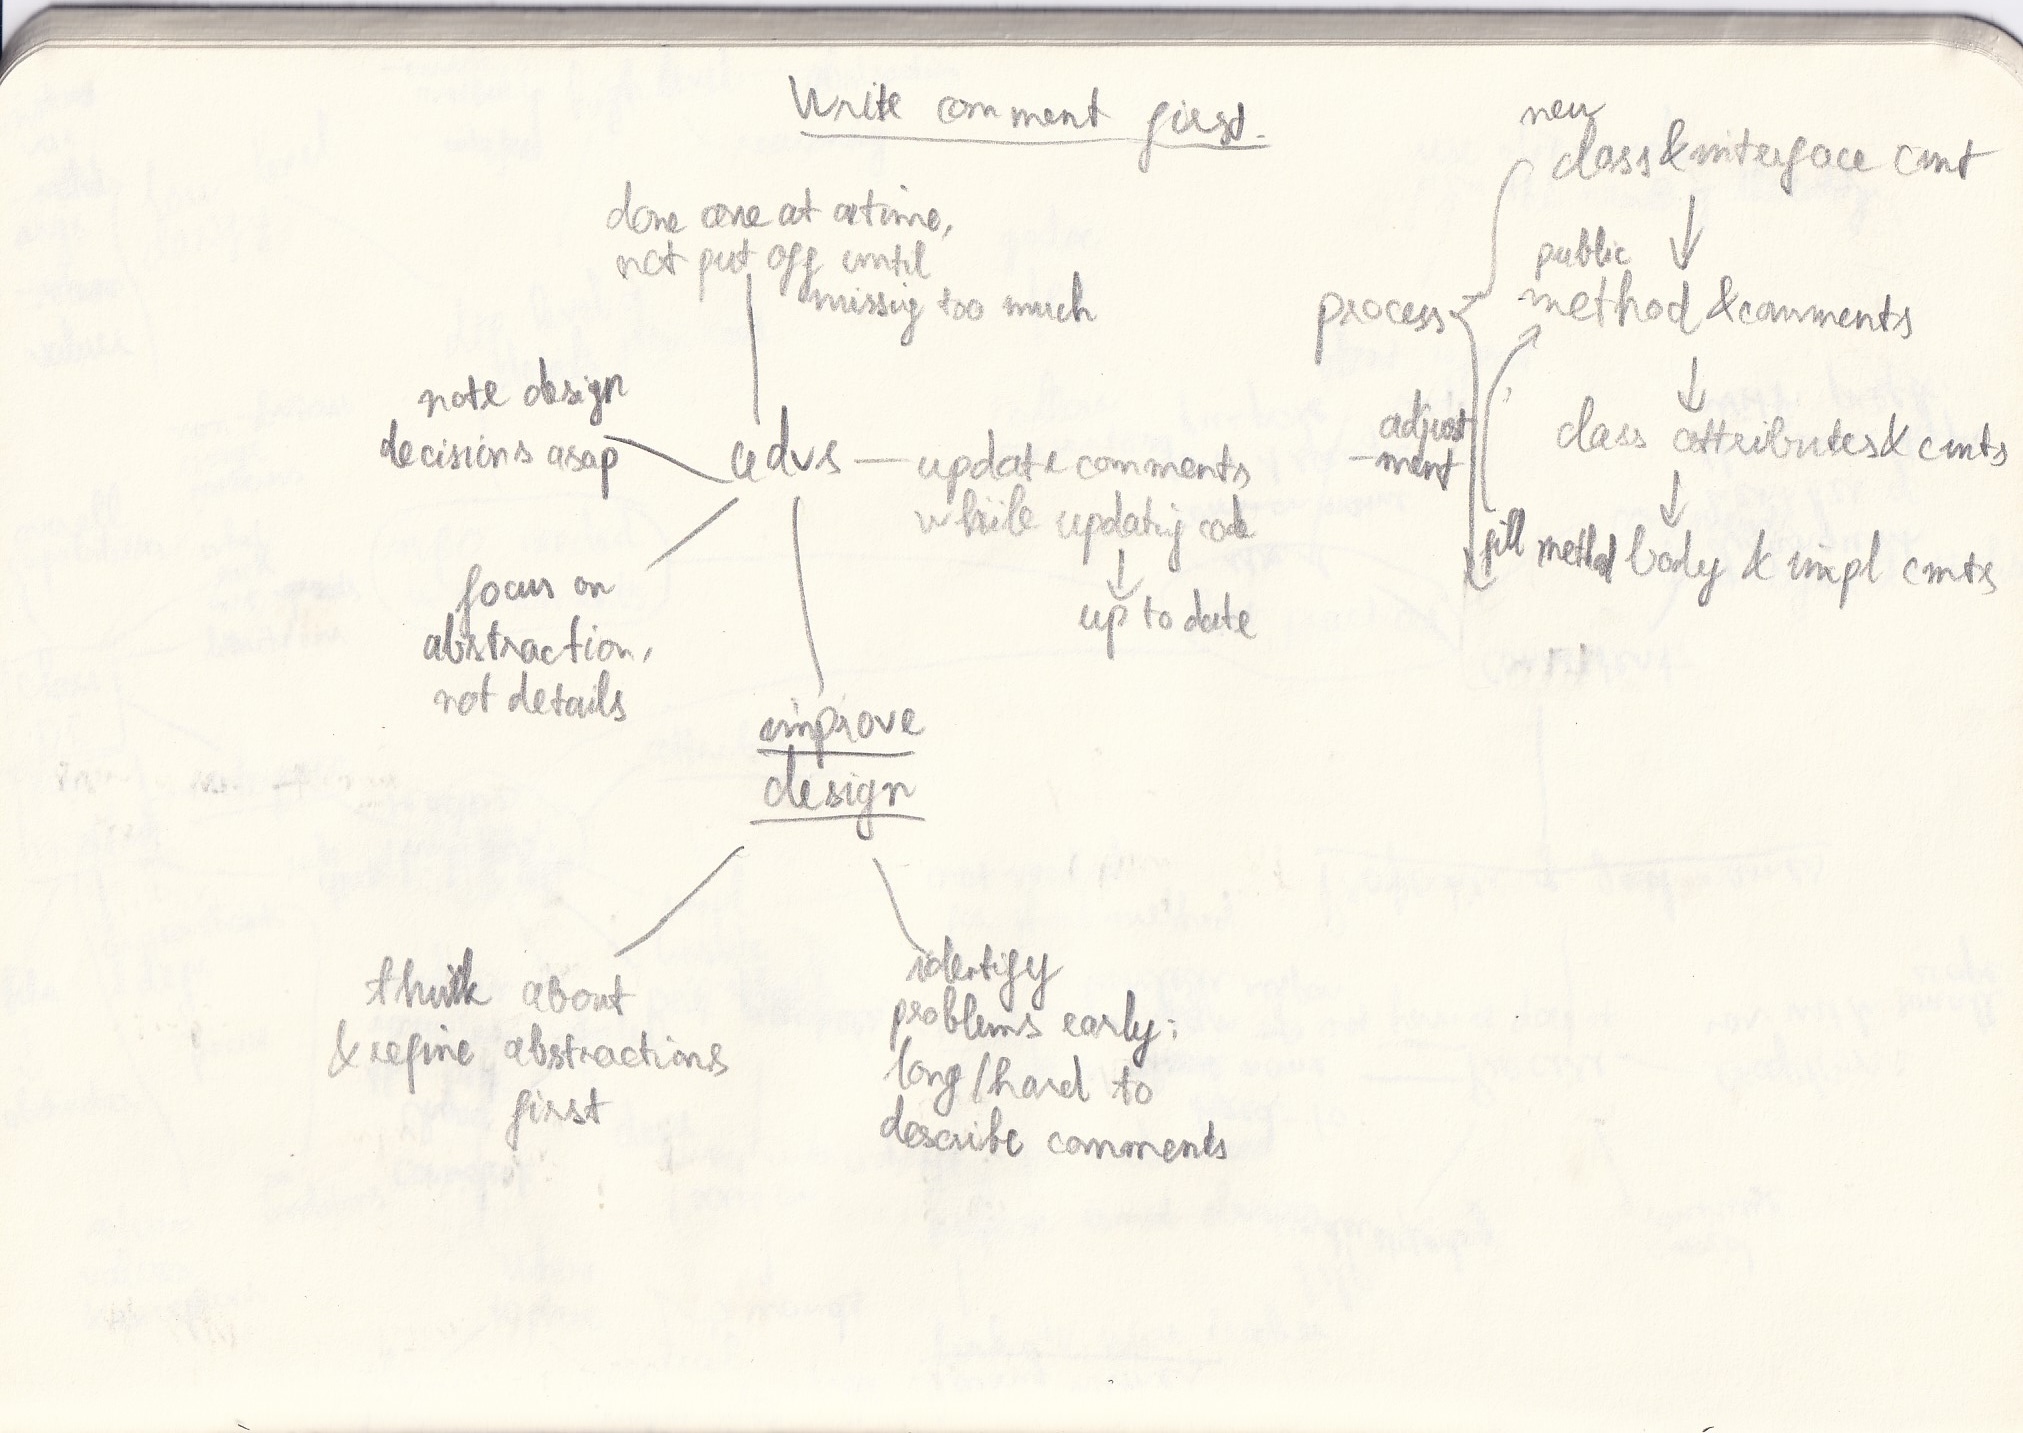 Write comment first.
done one at a time,
not put off until
missig too much
note design
decisions asap
advs
update comments
while updatig code
up to date
focus on
abstraction,
not details
improve
design
think about
& refine abstractions
first
identify
problems early:
long/hard to
describe comments
process
new
class & interface cmt
public
method & comments
class attributes & cmts
fill method body & impl cmts
adjust
-ment